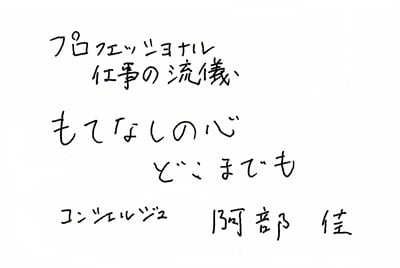 プロフェッショナル
仕事の流儀
もてなしの心
どこまでも
コンシェルジュ 阿部 佳